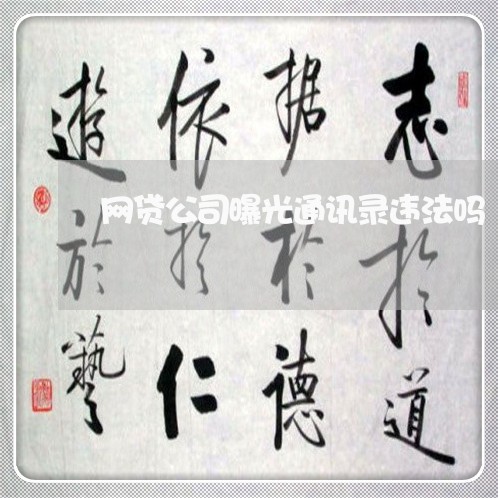 志於道
据於德
依於仁
遊於藝
网贷公司曝光通讯录违法吗